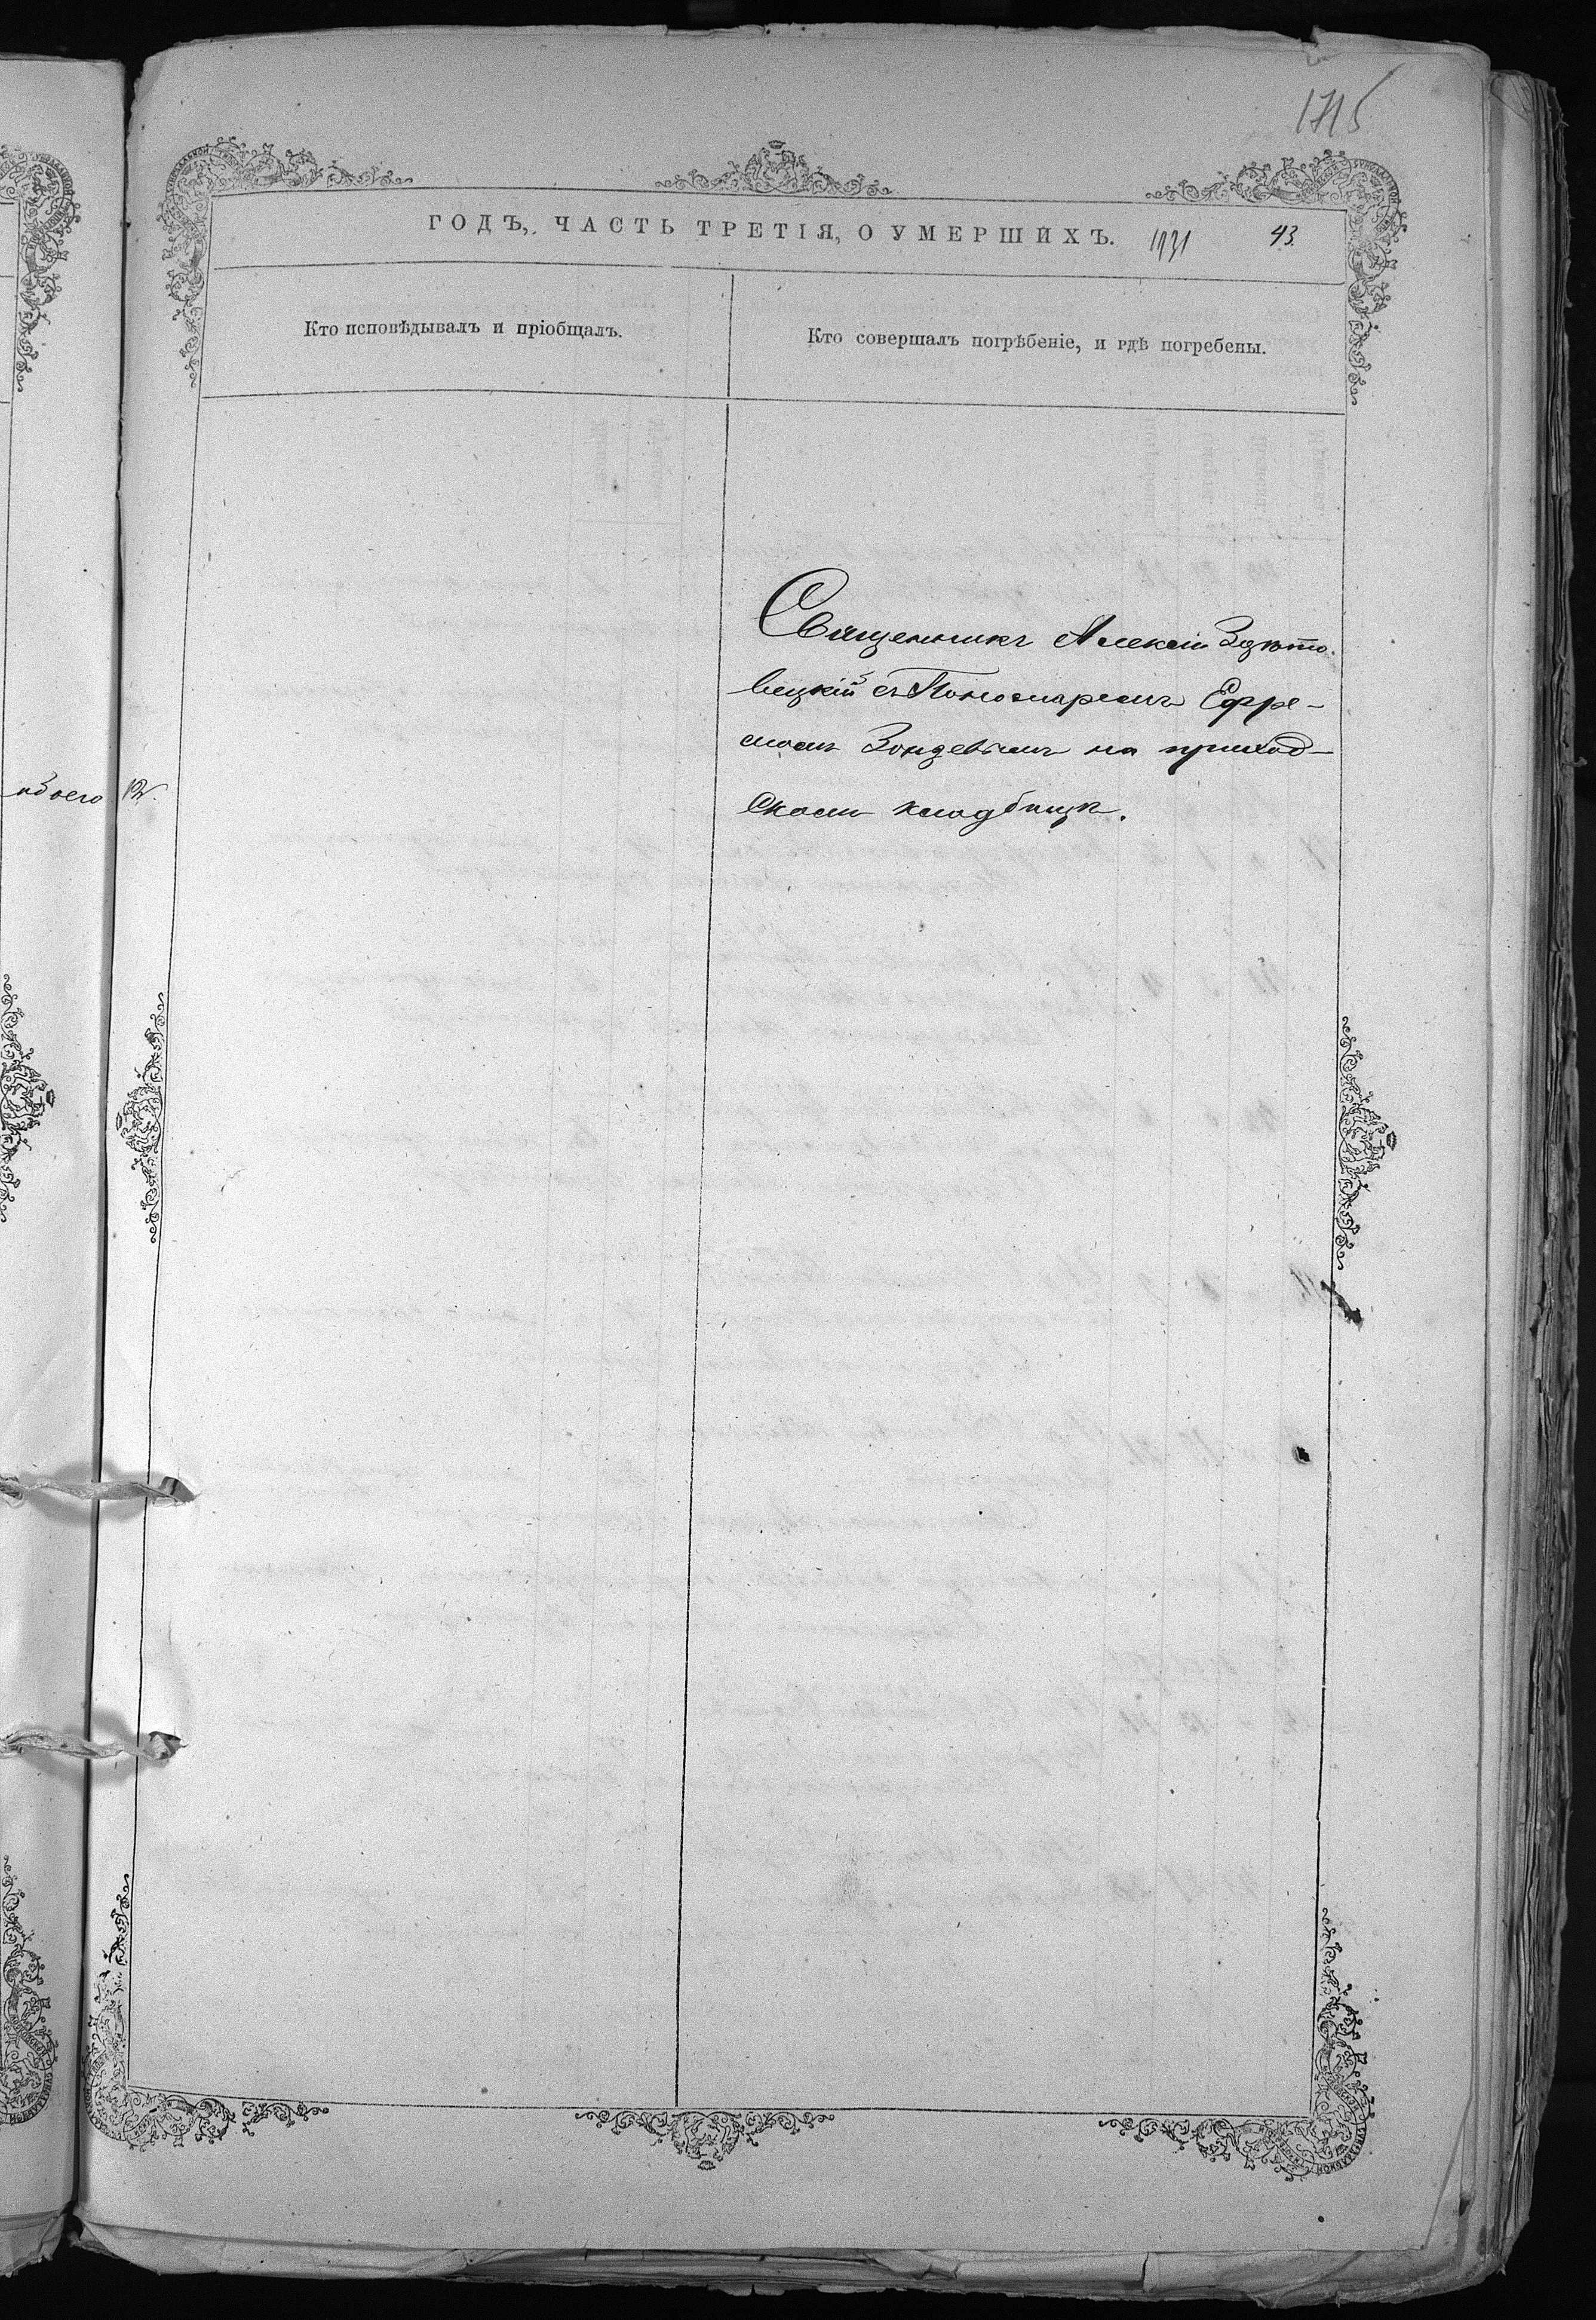 1715
ГОДЪ, ЧАСТЬ ТРЕТІЯ, О УМЕРШИХЪ. 1931 43.
Кто исповѣдывалъ и пріобщалъ.
Кто совершалъ погрѣбеніе, и гдѣ погребены.
Священникъ Алексій Здѣто-
вецкій съ Пономаремъ Ефре-
момъ на приход-
скомъ кладбищѣ.
обоего 12.